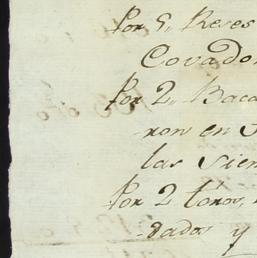 Por 5,, Reses
Covado
Por 2,, Baca
ron en
las sien
Por 2 toros,
dados y